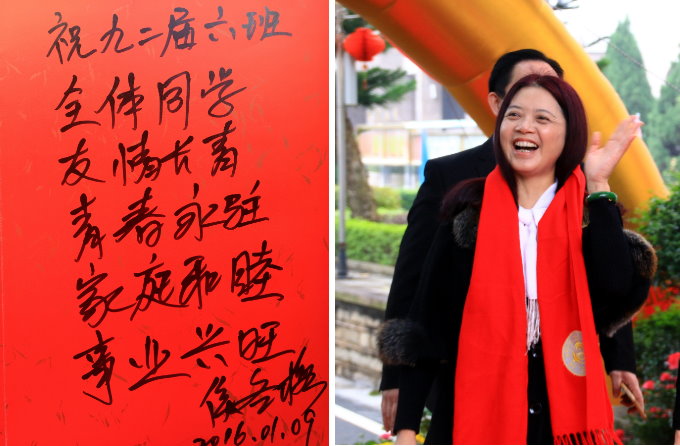 祝九二届六班
全体同学
友情长青
青春永驻
家庭和睦
事业兴旺
2016.01.09